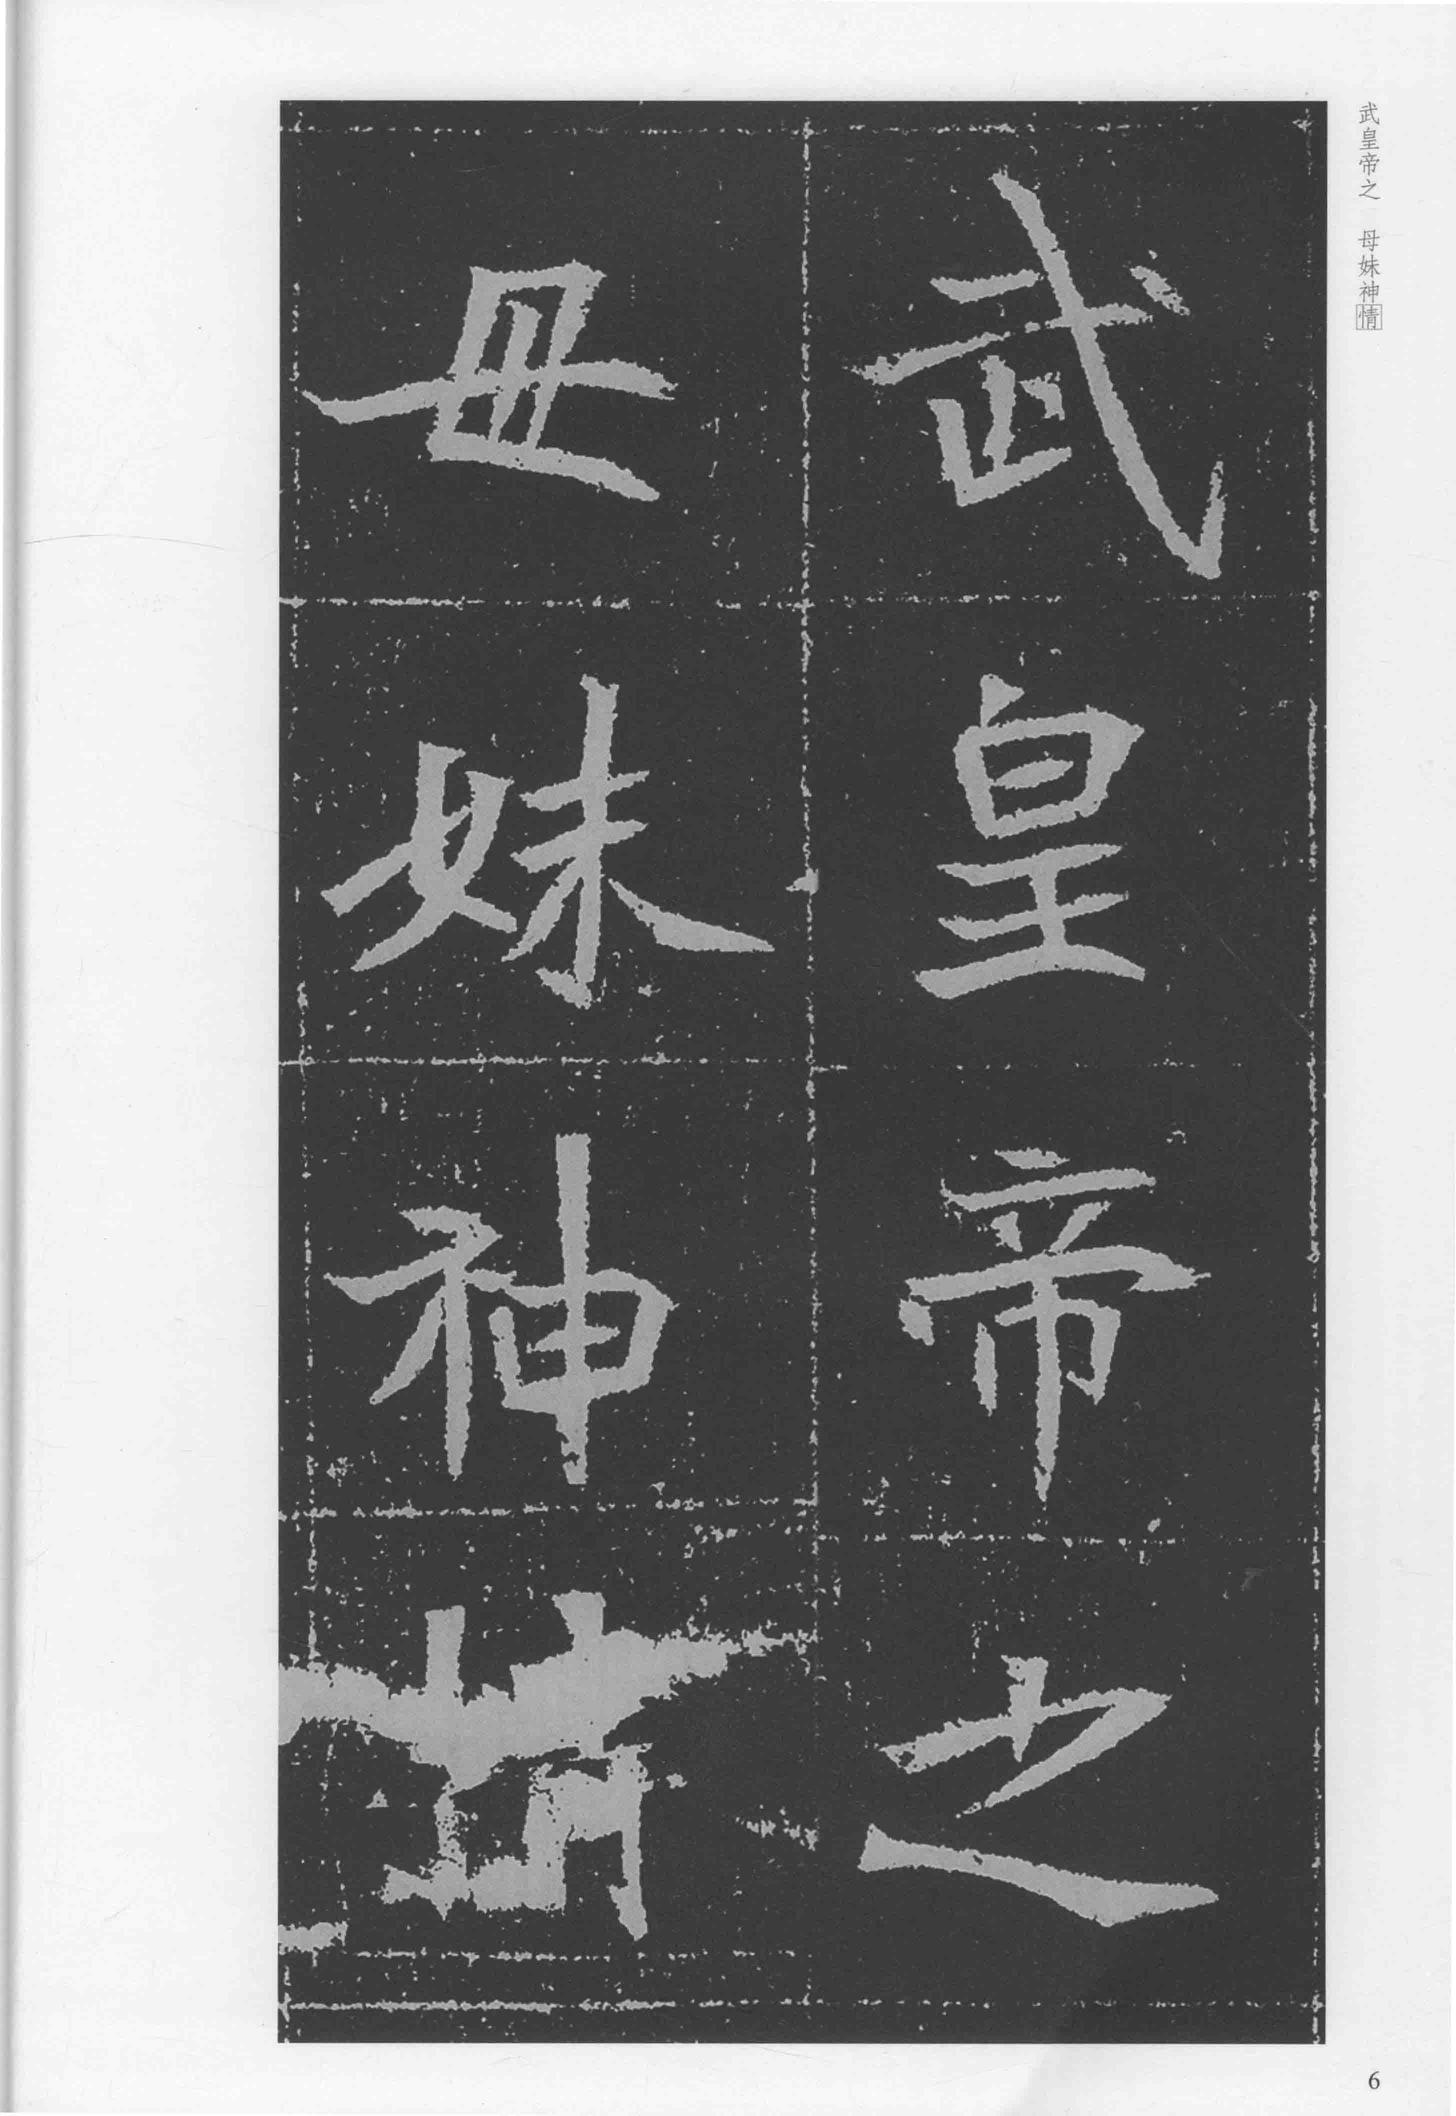 武皇帝之
母妹神情
武皇帝之 母妹神情
6